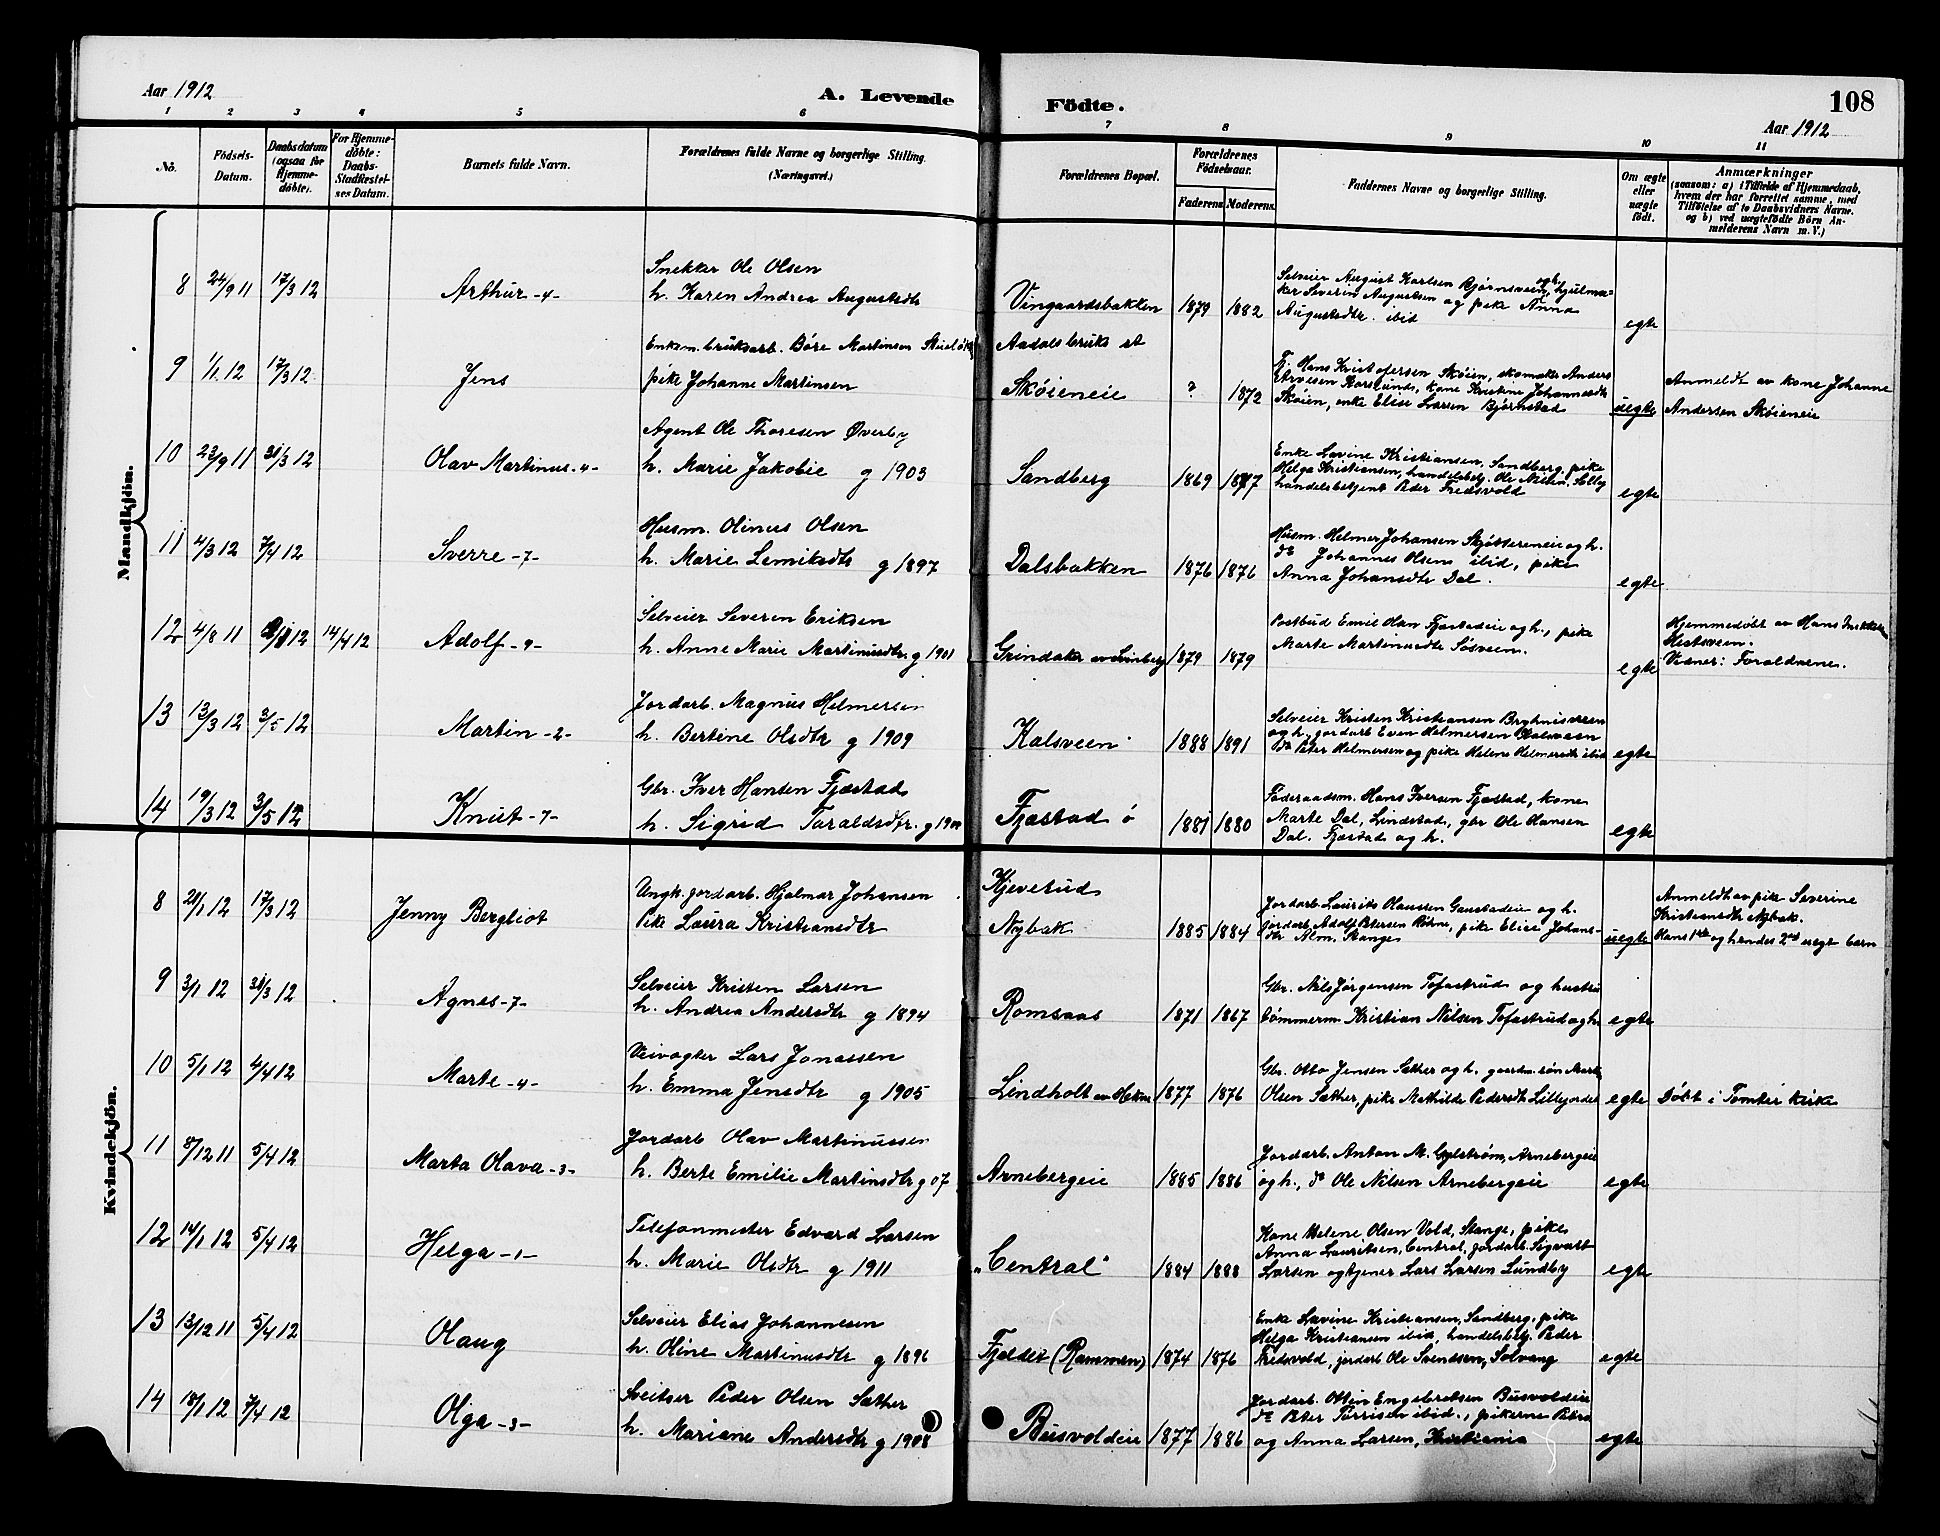 Aar 1912
A. Levende Födte.
108
Aar 1912
1 2 3 4 5 6 7 8 9 10 11
No.
Födsels-Datum.
Daabsdatum (ogsaa for Hjemmedöbte).
For Hjemmedöbte: Daabs-Stadfæstelses Datum.
Barnets fulde Navn.
Forældrenes fulde Navne og borgerlige Stilling. (Næringsvei.)
Forældrenes Bopæl.
Forældrenes Födselsaar.
Faderens Moderens.
Faddernes Navne og borgerlige Stilling.
Om ægte eller uægte födt.
Anmærkninger (saasom: a) i Tilfælde af Hjemmedaab, hvem der har forrettet samme, med Tilföielse af to Daabsvidners Navne. og b) ved uægtefödte Börn Anmelderens Navn m. V.)
Mandkjön.
8 24/9 11 17/3 12 Arthur -4-
Snekker Ole Olsen
h. Karen Andrea Augustsdtr
Vingaardsbakken 1879 1882
Selveier August Karlsen Bjørnsveen og h, hjulmaker Severin Augustsen og pike Anna Augustsdtr. ibid
egte
9 1/1 12 17/3 12 Jens
Enkem. bruksarb. Bore Martinsen
pike Johanne Martinsen
Aadalsbruk st
Skøieneie ? 1872
Tj. Hans Kristofersen Skøien, skomaker Anders Korslund, kone Kristine Johannesdtr Skøien, enke Elise Larsen Bjørnstad
uegte
Anmeldt av kone Johanne Andersen Skøieneie
10 23/9 11 31/3 12 Olav Martinus -4-
Agent Ole Thoresen Øverby
h. Marie Jakobie g 1903
Sandberg 1869 1877
Enke Lavine Kristiansen, Sandberg, pike Helga Kristiansen, handelsbetj. Ole Nilsen, handelsbetjent Peder Fredsvold
egte
11 4/3 12 7/4 12 Sverre -7-
Husm. Olinus Olsen
h. Marie Lemiksdtr g 1897
Dalsbakken 1876 1876
Husm. Helmer Johansen Skjøttereneie og h. do Johannes Olsen ibid, pike Anna Johansdtr Dal.
egte
12 4/8 11 12 14/4 12 Adolf -9-
Selveier Severin Eriksen
h. Anne Marie Martinusdtr. g 1901
Grindaker av Lunberg 1879 1879
Postbud Emil Olsen Fjæstadeie og h., pike Marte Martinusdtr Søsveen.
egte
Hjemmedøbt av Hans Hestsveen.
Vidner: Forældrene.
13 13/3 12 3/5 12 Martin -2-
Jordarb. Magnus Helmersen
h. Bertine Olsdtr g 1909
Kalsveen 1888 1891
Selveier Kristen Kristiansen Bryhnisveen og h., jordarb Even Helmersen Kalsveen do Peter Helmersen og pike Helene Helmersdtr ibid
egte
14 19/3 12 3/5 12 Knut -7-
Gbr. Iver Hansen Fjæstad
h. Sigrid Taraldsdtr. g 1900
Fjæstad ø 1881 1880
Føderaadsm. Hans Iversen Fjæstad, kone Marte Dal, Lindstad, gbr Ole Hansen Dal. Fjæstad og h.
egte
Kvindekjön.
8 28/1 12 17/3 12 Jenny Bergliot
Ungk. jordarb. Hjalmar Johansen
Pike Laura Kristiansdtr
Kjeverud
Nybak 1885 1884
Jordarb Laurits Olaussen Gaustadeie og h. jordarb. Adolf Petersen Rohne, pike Elise Johansdtr Alm, Stange
uegte
Anmeldt av pike Severine Kristiansdtr Nybak.
Hans 1ste og hendes 2det uegte barn
9 3/1 12 31/3 12 Agnes -7-
Selveier Kristen Larsen
h. Andrea Andersdtr g 1894
Romsaas 1871 1867
Gbr. Nils Jørgensen Tofastrud og hustru tømmerm. Kristian Nilsen Tofastrud og h.
egte
10 5/1 12 4/4 12 Marte -4-
Veivogter Lars Jonassen
h. Emma Jensdtr g 1905
Lindholt av Helm 1877 1876
Gbr. Otto Jensen Sæther og h. gaardm. søn Martin Olsen Sæther, pike Mathilde Pedersdtr Lillejordet
egte
Døbt i Tomter kirke
11 8/12 11 5/4 12 Marta Olava -3-
Jordarb Olav Martinussen
h. Berte Emilie Martinsdtr g 07
Arnebergeie 1885 1886
Jordarb. Anton M. Gylstrøm, Arnebergeie og h., do Ole Nilsen Arnebergeie
egte
12 14/1 12 5/4 12 Helga -1-
Telefonmester Edvard Larsen
h. Marie Olsdtr g 1911
„Central" 1884 1888
Kone Helene Olsen Vold, Stange, pike Anna Lauritsen, Central, jordarb. Sigvart Larsen og tjener Lars Larsen Lundby
egte
13 13/12 11 5/4 12 Olaug
Selveier Elias Johannesen
h. Oline Martinusdtr g 1896
Fjeldet (Rammen) 1874 1876
Enke Lavine Kristiansen, Sandberg, pike Helga Kristiansen ibid, handelsbetj. Peder Fredsvold, jordarb Ole Svendsen, Solvang
egte
14 18/1 12 7/4 12 Olga -3-
Sveitser Peder Olsen Sæther
h. Mariane Andersdtr g 1908
Busvoldeie 1877 1886
Jordarb. Ottin Engebretsen Busvoldeie do Peter Torrisen ibid., pikerne Petra og Anna Larsen, Kristiania
egte